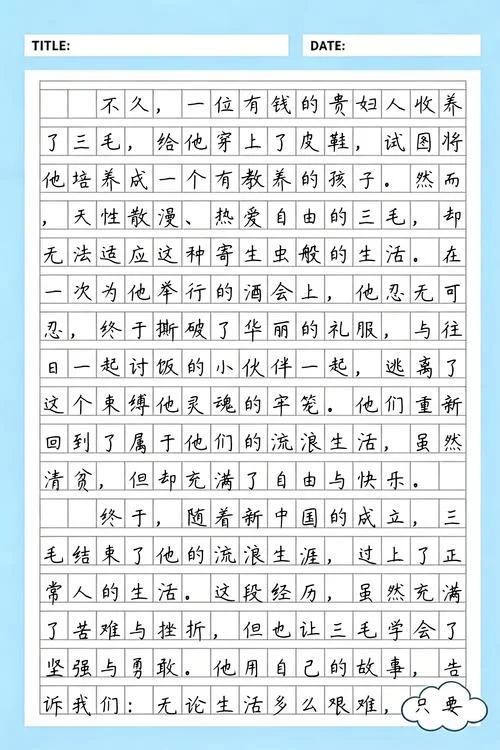 TITLE: DATE:
不久，一位有钱的贵妇人收养
了三毛，给他穿上了皮鞋，试图将
他培养成一个有教养的孩子。然而
，天性散漫、热爱自由的三毛，却
无法适应这种寄生虫般的生活。在
一次为他举行的酒会上，他忍无可
忍，终于撕破了华丽的礼服，与往
日一起讨饭的小伙伴一起，逃离了
这个束缚他灵魂的牢笼。他们重新
回到了属于他们的流浪生活，虽然
清贫，但却充满了自由与快乐。
终于，随着新中国的成立，三
毛结束了他的流浪生涯，过上了正
常人的生活。这段经历，虽然充满
了苦难与挫折，但也让三毛学会了
坚强与勇敢。他用自己的故事，告
诉我们：无论生活多么艰难，只要